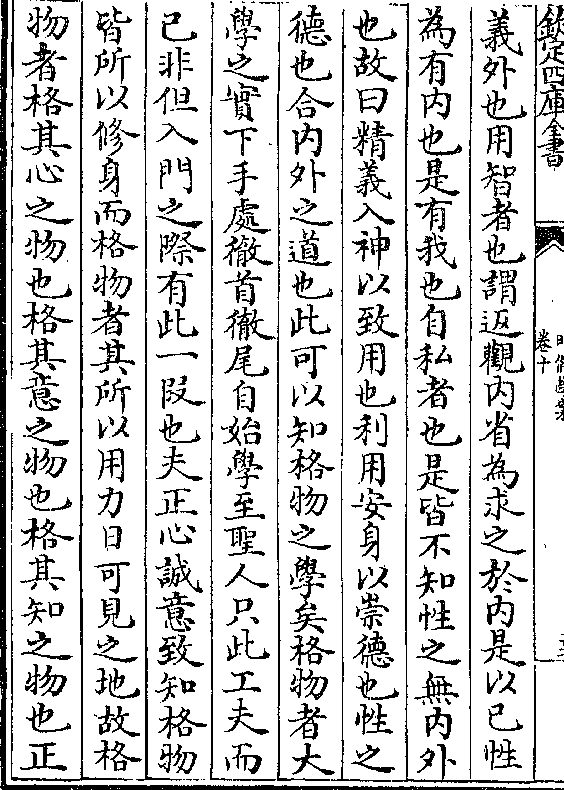 欽定四庫全書
明儒學案
卷十
義外也用智者也謂返觀内省為求之於内是以已性
為有内也是有我也自私者也是皆不知性之無内外
也故曰精義入神以致用也利用安身以崇德也性之
德也合内外之道也此可以知格物之學矣格物者大
學之實下手處徹首徹尾自始學至聖人只此工夫而
已非但入門之際有此一段也夫正心誠意致知格物
皆所以修身而格物者其所以用力日可見之地故格
物者格其心之物也格其意之物也格其知之物也正